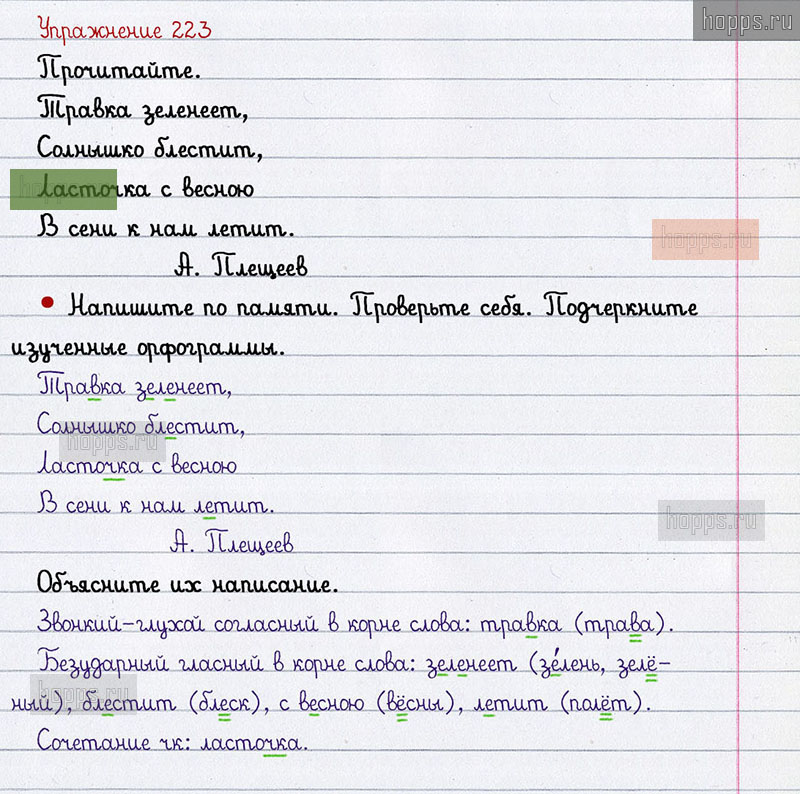 hopps.ru
Упражнение 223
Прочитайте.
Травка зеленеет,
Солнышко блестит,
Ласточка с весною
hopps.ru
В сени к нам летит.
hopps.ru
А. Плещеев
• Напишите по памяти. Проверьте себя. Подчеркните
изученные орфограммы.
Травка зеленеет,
Солнышко блестит,
hopps.ru
Ласточка с весною
В сени к нам летит.
hopps.ru
А. Плещеев
Объясните их написание.
Звонкий-глухой согласный в корне слова: травка (трава).
Безударный гласный в корне слова: зеленеет (зе́лень, зелё-
hopps.ru
ный), блестит (блеск), с весною (вёсны), летит (полёт).
Сочетание чк: ласточка.